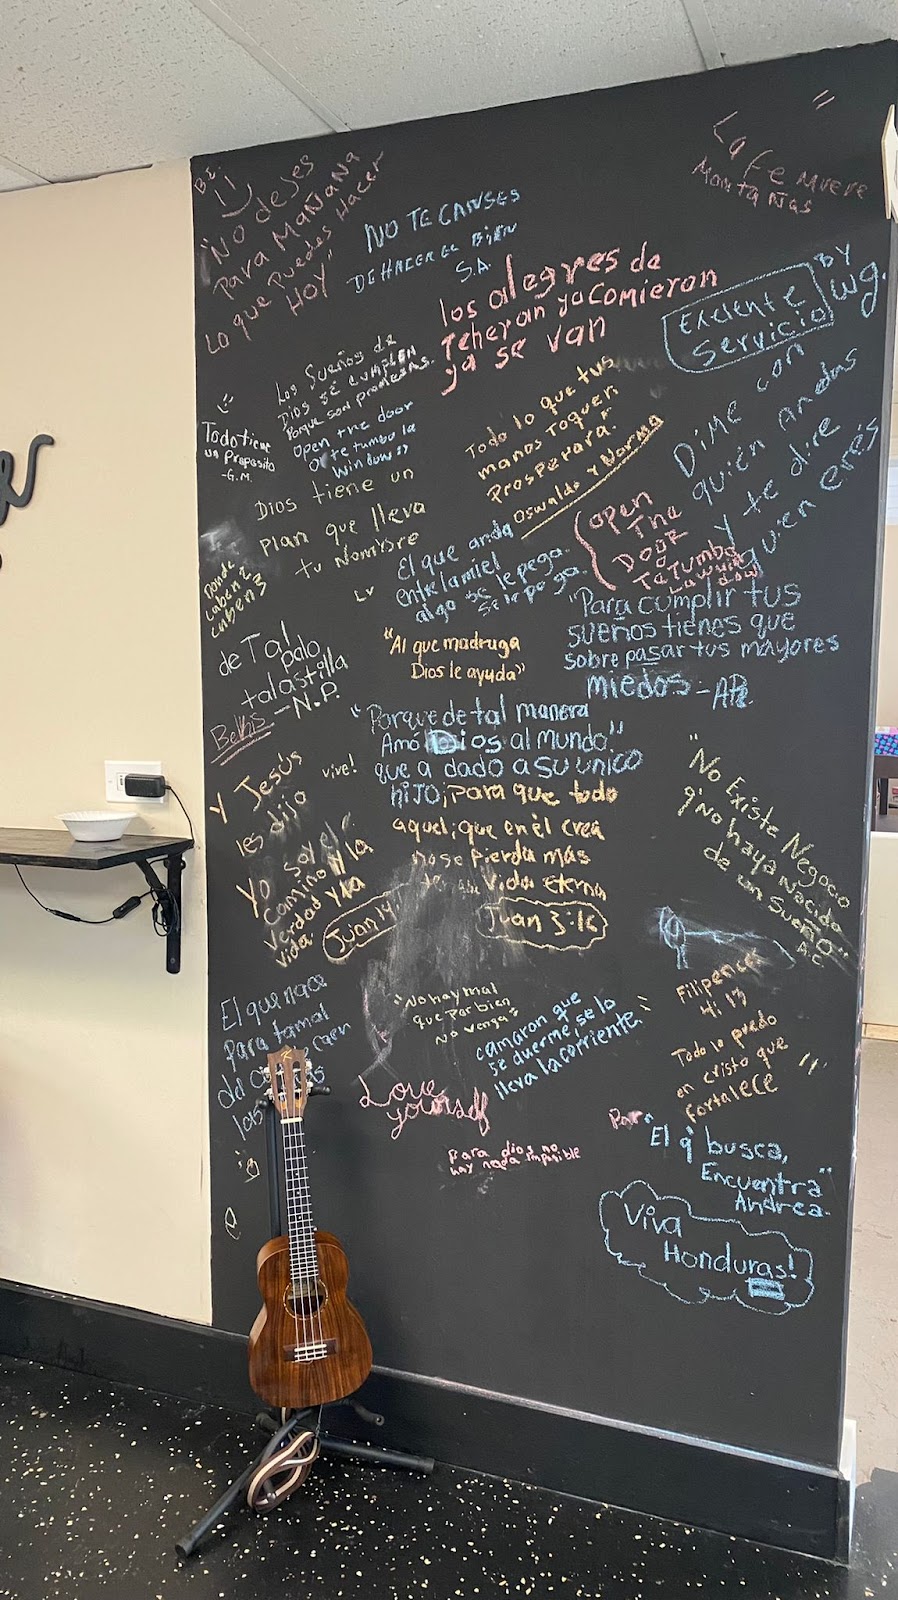 BI.
"No dejes
para MAÑANA
Lo que Puedes Hacer
HOY"
NO TE CANSES
DE HACER EL BIEN
S.A.
La Fe mueve
Montañas
los alegres de
Teheran ya comieron
ya se van
Exelente
Servicio
BY
wg.
Los Sueños de
Dios SE CUMPLEN
Porque son promesas.
open the door
o te tumbo la
window"
Todo tiene
un Proposito
-G.M.
Todo lo que tus
manos Toquen
Prosperará.
Oswaldo y Norma
Dime con
quién andas
y te dire
quien eres
Dios tiene un
Plan que lleva
tu Nombre
LV
open
The
DOOR
o
Te Tumbo
La window
El que anda
entre la miel
algo se le pega.
Se le pega.
Donde
caben 2
caben 3
"Para cumplir tus
sueños tienes que
sobre pasar tus mayores
miedos - AR.
"Al que madruga
Dios le ayuda"
de Tal
palo
tal astilla
- N.P.
Belkis
"Porque de tal manera
Amó Dios al mundo."
que a dado a su unico
hijo; para que todo
aquel; que en él crea
no se pierda más
vida eterna
Juan 3:16
Y Jesús
les dijo
vive!
Yo soy el
Camino y la
Verdad y la
vida.
Juan 14
"No Existe Negocio
q' no haya Nacido
de un Sueño"
A.C.
El que nace
para tamal
del
caen
las
"No hay mal
que por bien
No venga"
camaron que
se duerme, se lo
lleva la corriente.
Filipences
4:13
Todo lo puedo
en cristo que
fortalece
Love
yourself
para dios no
hay nada imposible
Por
"El q' busca,
Encuentra"
Andrea.
Viva
Honduras!